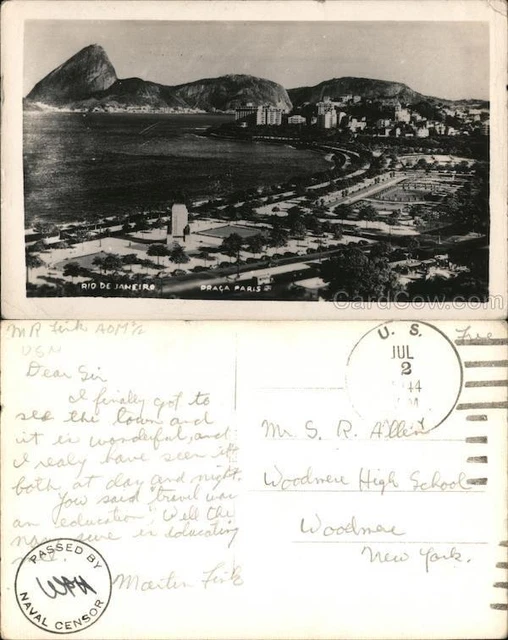 RIO DE JANEIRO PRAÇA PARIS
CardCow.com
M R Fink AOM 2/c
USN
Dear Sir
I finally got to
see the town and
it is wonderful, and
I realy have seen it
both at day and night.
You said "travel was
an education", Well the
navy sure is educating
me.
Martin Fink
PASSED BY
NAVAL CENSOR
U. S.
JUL
2
44
Free
Mr S. R. Allen
Woodmere High School
Woodmere
New York.